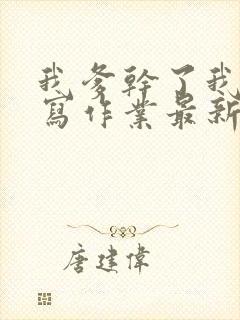 我爹幹了我
寫作業最新
唐建偉